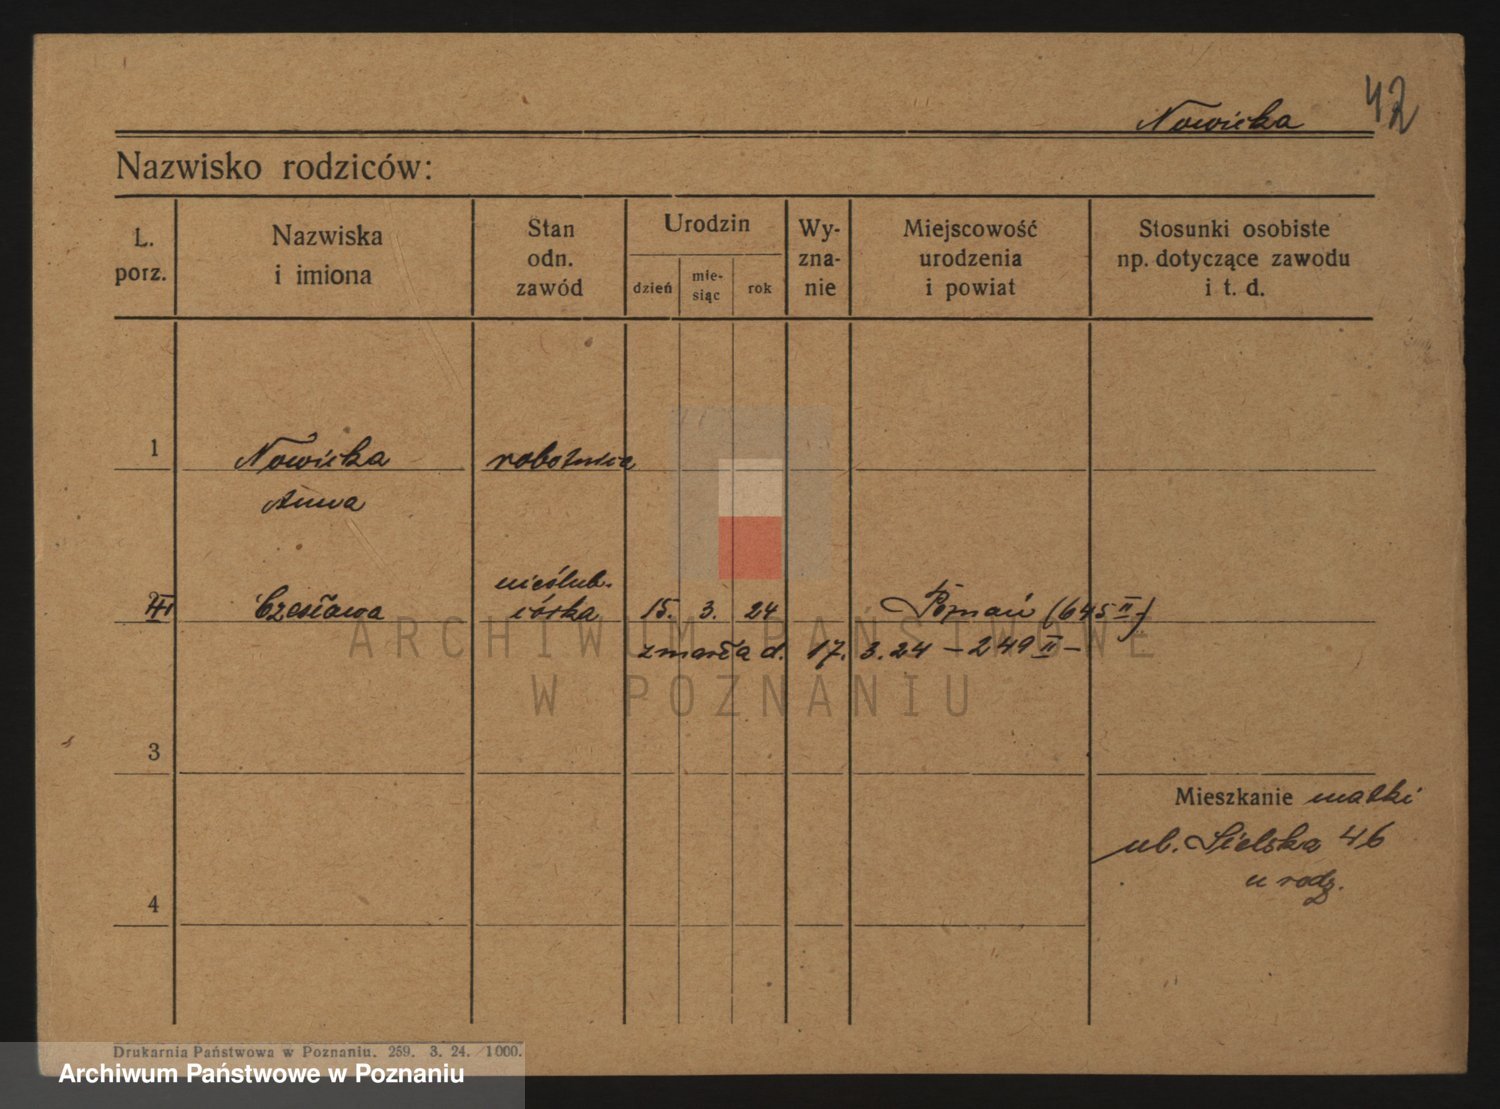 42
Nowicka
Nazwisko rodziców:
L. porz.
Nazwiska i imiona
Stan odn. zawód
Urodzin
dzień
mie-siąc
rok
Wy-zna-nie
Miejscowość urodzenia i powiat
Stosunki osobiste np. dotyczące zawodu i t. d.
1 Nowicka robotnica
Anna
nieślub.
Czesława córka 15. 3. 24 Poznań (645 II)
zmarła d. 17. 3. 24 – 249 II –
ARCHIWUM PAŃSTWOWE
W POZNANIU
3
Mieszkanie matki
ul. Sielska 46
u rodz.
4
Drukarnia Państwowa w Poznaniu. 259. 3. 24. /1000.
Archiwum Państwowe w Poznaniu